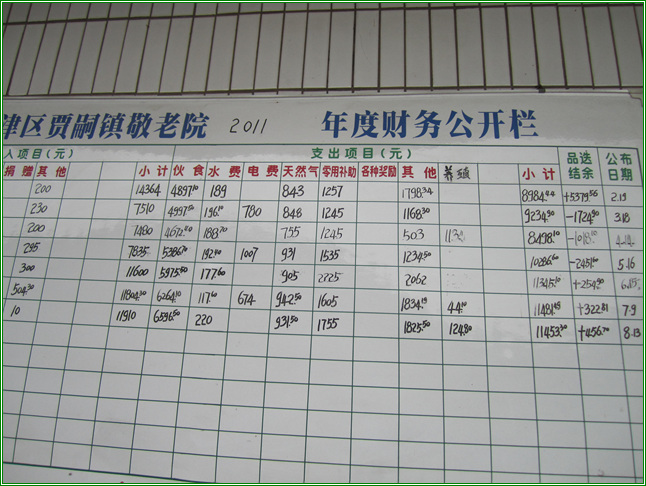 津区贾嗣镇敬老院 2011 年度财务公开栏
入项目（元） 支出项目（元） 品迭结余 公布日期
捐赠 其他 小计 伙食 水费 电费 天然气 零用补助 各种奖励 其他 养殖 小计
200 14364 4897.80 189 843 1257 1798.34 8984.44 +5379.56 2.19
230 7510 4997.50 196.10 780 848 1245 1168.30 9234.90 -1724.90 3.18
200 7480 4672.80 188.70 755 1245 503 8498.10 -1018.10
295 7835 5386.70 192.90 1007 931 1535 1234.50 10286.60 -2451.60 5.16
300 11600 5975.80 177.60 905 2225 2062 11345.10 +254.90
504.30 11804.30 6264.10 117.60 674 942.50 1605 1834.19 44.00 11481.49 +322.81 7.9
10 11910 6596.50 220 931.50 1755 1825.50 124.80 11453.30 +456.70 8.13